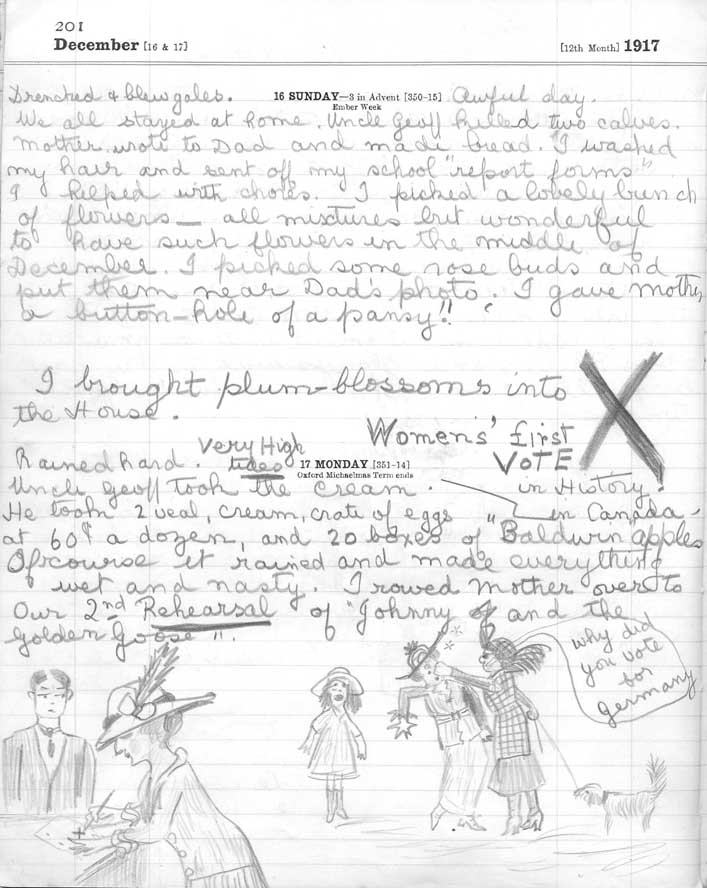 201
December [16 & 17] [12th Month] 1917
Drenched & blew gales. 16 SUNDAY—3 in Advent [350-15] Awful day.
Ember Week
We all stayed at home. Uncle Geoff killed two calves.
Mother wrote to Dad and made bread. I washed
my hair and sent off my school "report forms"
I helped with chores. I picked a lovely bunch
of flowers — all mixtures but wonderful
to have such flowers in the middle of
December. I picked some rose buds and
put them near Dad's photo. I gave mother
a button-hole of a pansy!!
I brought plum-blossoms into
the House.
Women's first
VOTE
in History.
in Canada
X
Rained hard. Very High
tides 17 MONDAY [351-14]
Oxford Michaelmas Term ends
Uncle Geoff took the cream.
He took 2 veal, cream, crate of eggs
at 60¢ a dozen, and 20 boxes of "Baldwin apples
Ofcourse it rained and made everything
wet and nasty. I rowed Mother over to
our 2nd Rehearsal of "Johnny and the
golden Goose".
why did
you vote
for
germany